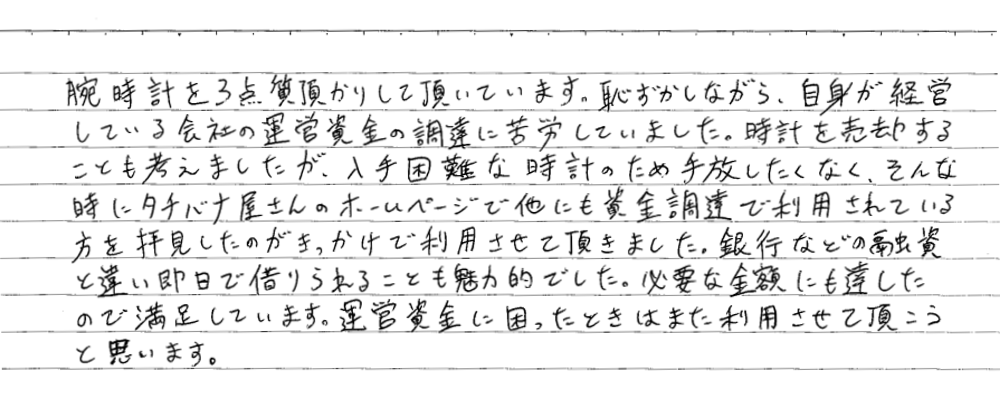 腕時計を3点質預かりして頂いています。恥ずかしながら、自身が経営
している会社の運営資金の調達に苦労していました。時計を売却する
ことも考えましたが、入手困難な時計のため手放したくなく、そんな
時にタチバナ屋さんのホームページで他にも資金調達で利用されている
方を拝見したのがきっかけで利用させて頂きました。銀行などの融資
と違い即日で借りられることも魅力的でした。必要な金額にも達した
ので満足しています。運営資金に困ったときはまた利用させて頂こう
と思います。